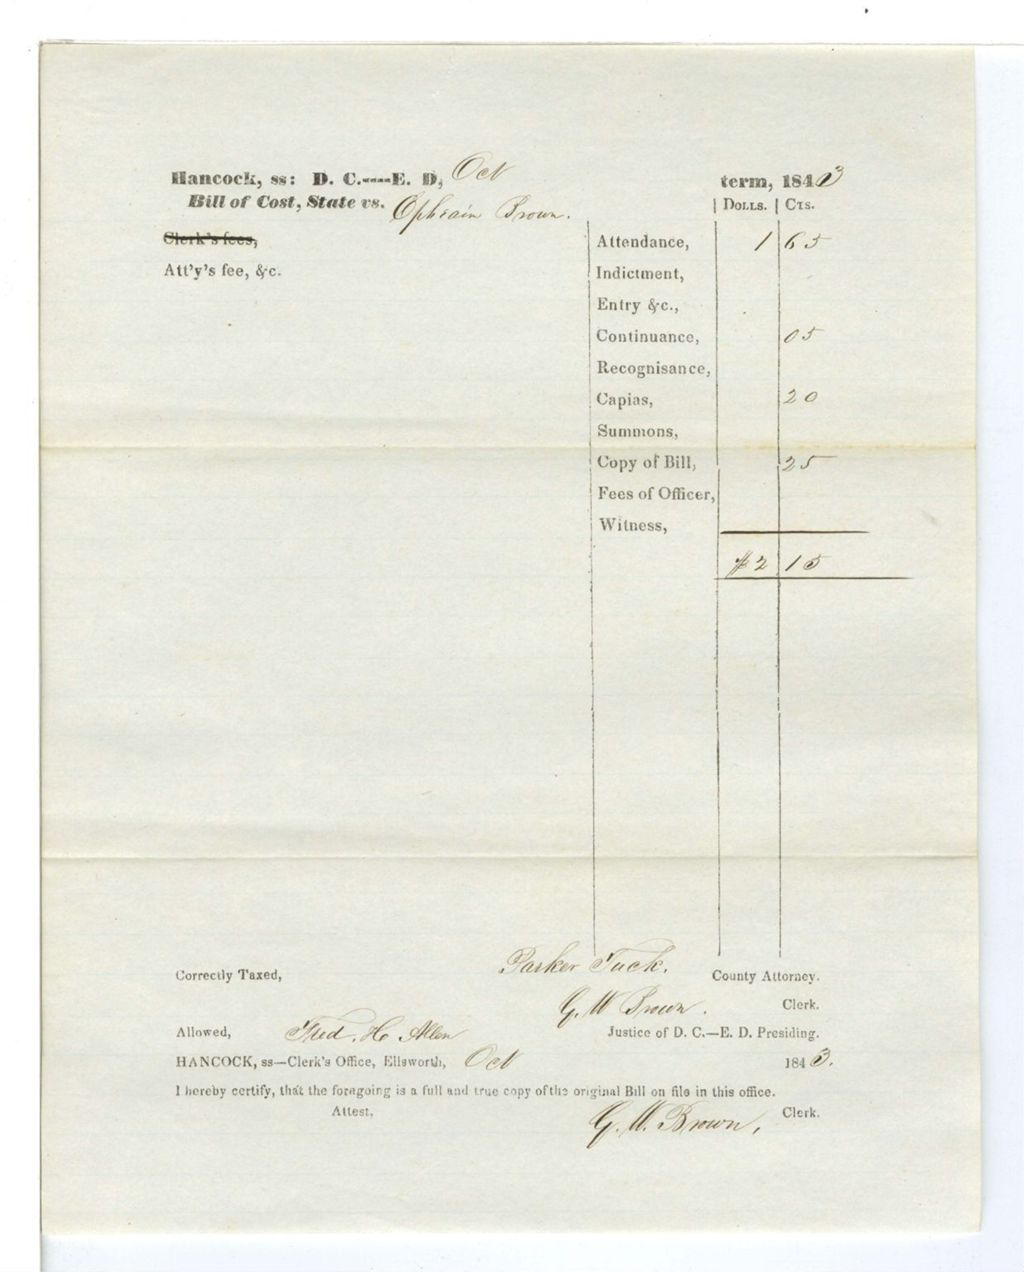 Hancock, ss: D. C.----E. D, Oct term, 1843
Bill of Cost, State vs. Ephraim Brown. | DOLLS. | CTS.
Clerk's fees, Attendance, 1 65
Att'y's fee, &c. Indictment,
Entry &c.,
Continuance, 05
Recognisance,
Capias, 20
Summons,
Copy of Bill, 25
Fees of Officer,
Witness,
$2 15
Correctly Taxed, Parker Tuck. County Attorney.
G. W Brown. Clerk.
Allowed, Fred. H. Allen Justice of D. C.—E. D. Presiding.
HANCOCK, ss—Clerk's Office, Ellsworth, Oct 1843.
I hereby certify, that the foregoing is a full and true copy of the original Bill on file in this office.
Attest, G. W. Brown, Clerk.